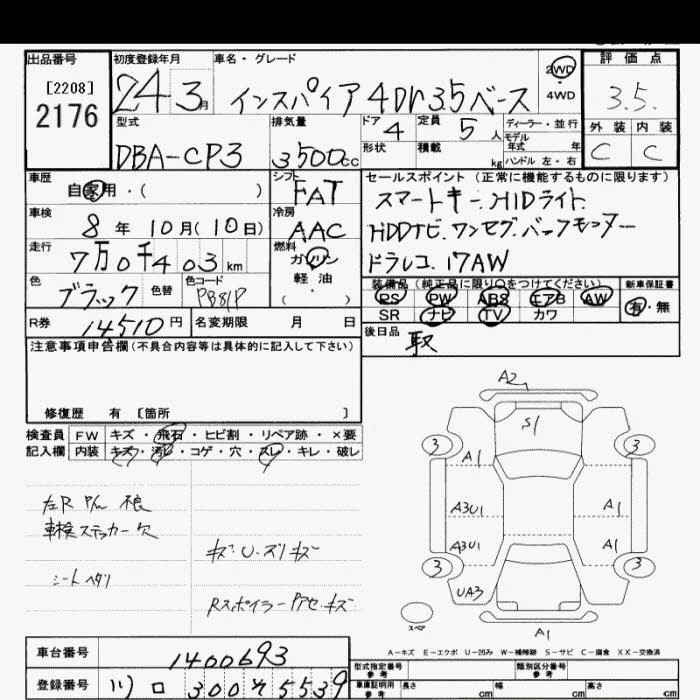 出品番号 初度登録年月 車名・グレード 評価点
[2208]
2176
24 3月 インスパイア 4Dr 3.5ベース 2WD 3.5.
4WD
型式 排気量 ドア 4 定員 5 人 ディーラー・並行 外装 内装
モデル年式 年
DBA-CP3 3500cc 形状 積載 kg ハンドル 左・右 C C
車歴 シフト セールスポイント (正常に機能するものに限ります)
自家用・( ) FAT スマートキー.HIDライト.
車検 冷房
8年 10月(10日) AAC HDDナビ.ワンセグ.バックモニター
走行 燃料
7万0千403km ガソリン ドラレコ.17AW
色 色替 色コード 軽油 装備品(純正品に限り○をつけてください) 新車保証書
ブラック ( ) PS PW ABS エアB AW 有・無
R券 14510円 名変期限 月 日 SR ナビ TV カワ
後日品 取
注意事項申告欄(不具合内容等は具体的に記入して下さい)
修復歴 有 [箇所 ]
検査員 FW キズ・飛石・ヒビ割・リペア跡・×要
記入欄 内装 キズ・汚レ・コゲ・穴・スレ・キレ・破レ
車検ステッカー欠
シートヘタリ
キズ・U.ズリキズ
A2
S1
3 3
A1
A3U1 A1
A3U1 A1
3 3
UA3
スペア
A1
A-キズ E-エクボ U-凹み W-補修跡 S-サビ C-腐食 XX-交換済
車台番号 1400693
型式指定番号 参考 類別区分番号 参考
登録番号 300 5539
車庫証明用 参考 長さ cm 幅 cm 高さ cm